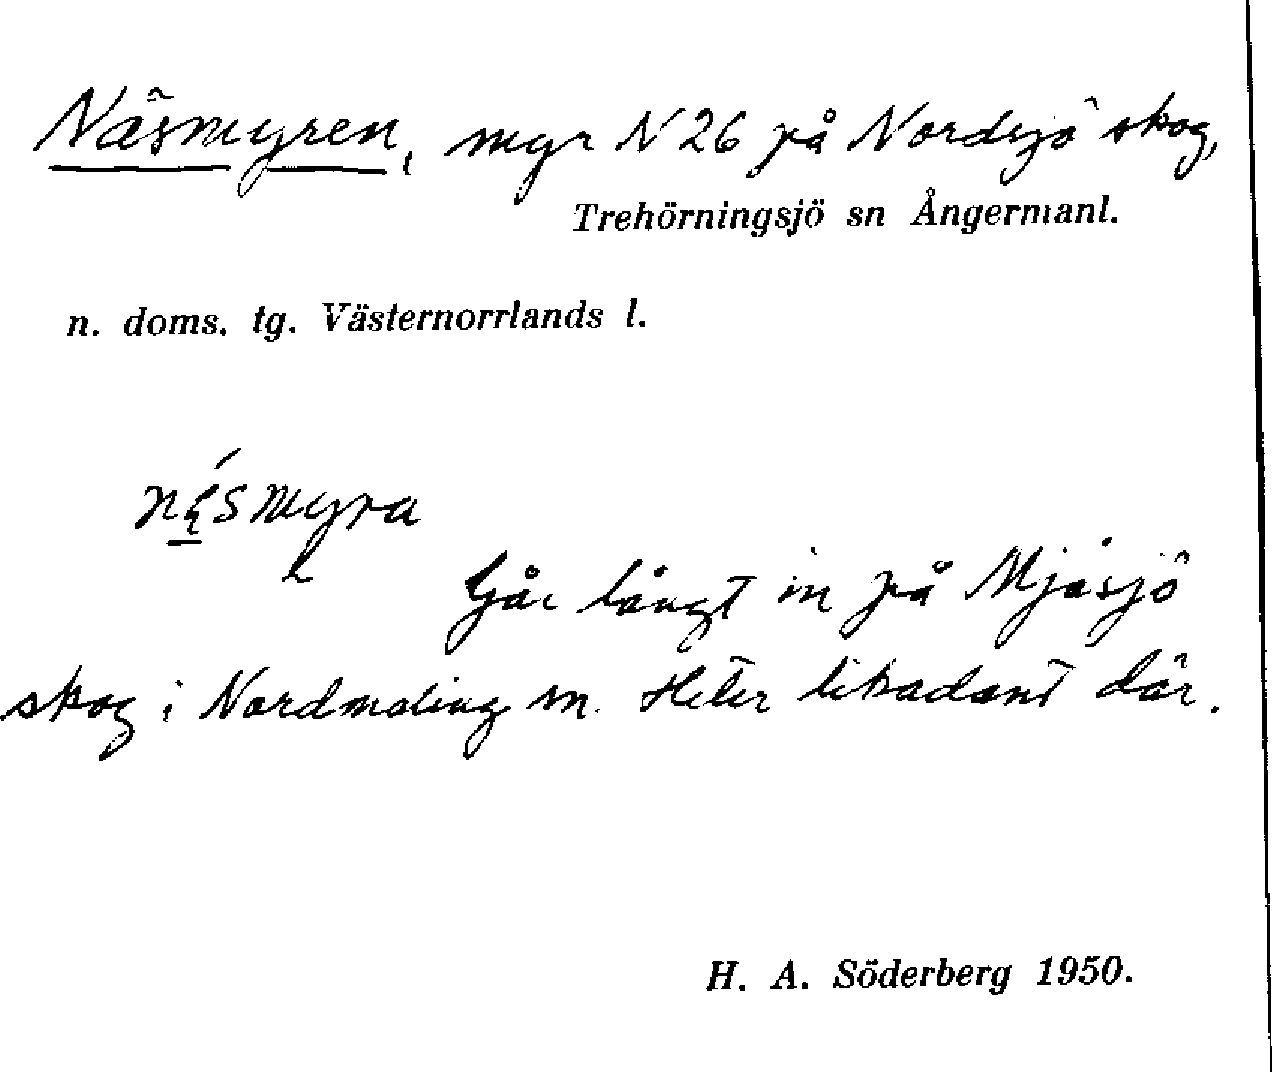 Näsmyren, myr N 26 på Nordsjö skog,
Trehörningsjö sn Ångermanl.
n. doms. tg. Västernorrlands l.
myra
Går långt in på Mjösjö
skog i Nordmaling sn. Heter likadant där.
H. A. Söderberg 1950.